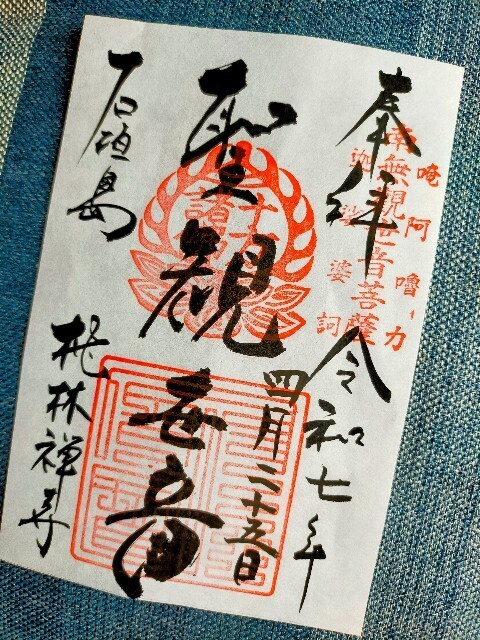 奉拝
南無観世音菩薩
唵阿嚕力迦婆婆訶
令和七年
四月二十五日
聖観世音
石垣島
桃林禅寺